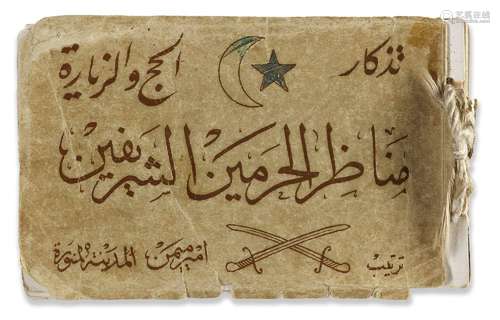 تذكار الحج والزيارة
مناظر الحرمين الشريفين
ترتيب امير ميمن المدينة المنورة